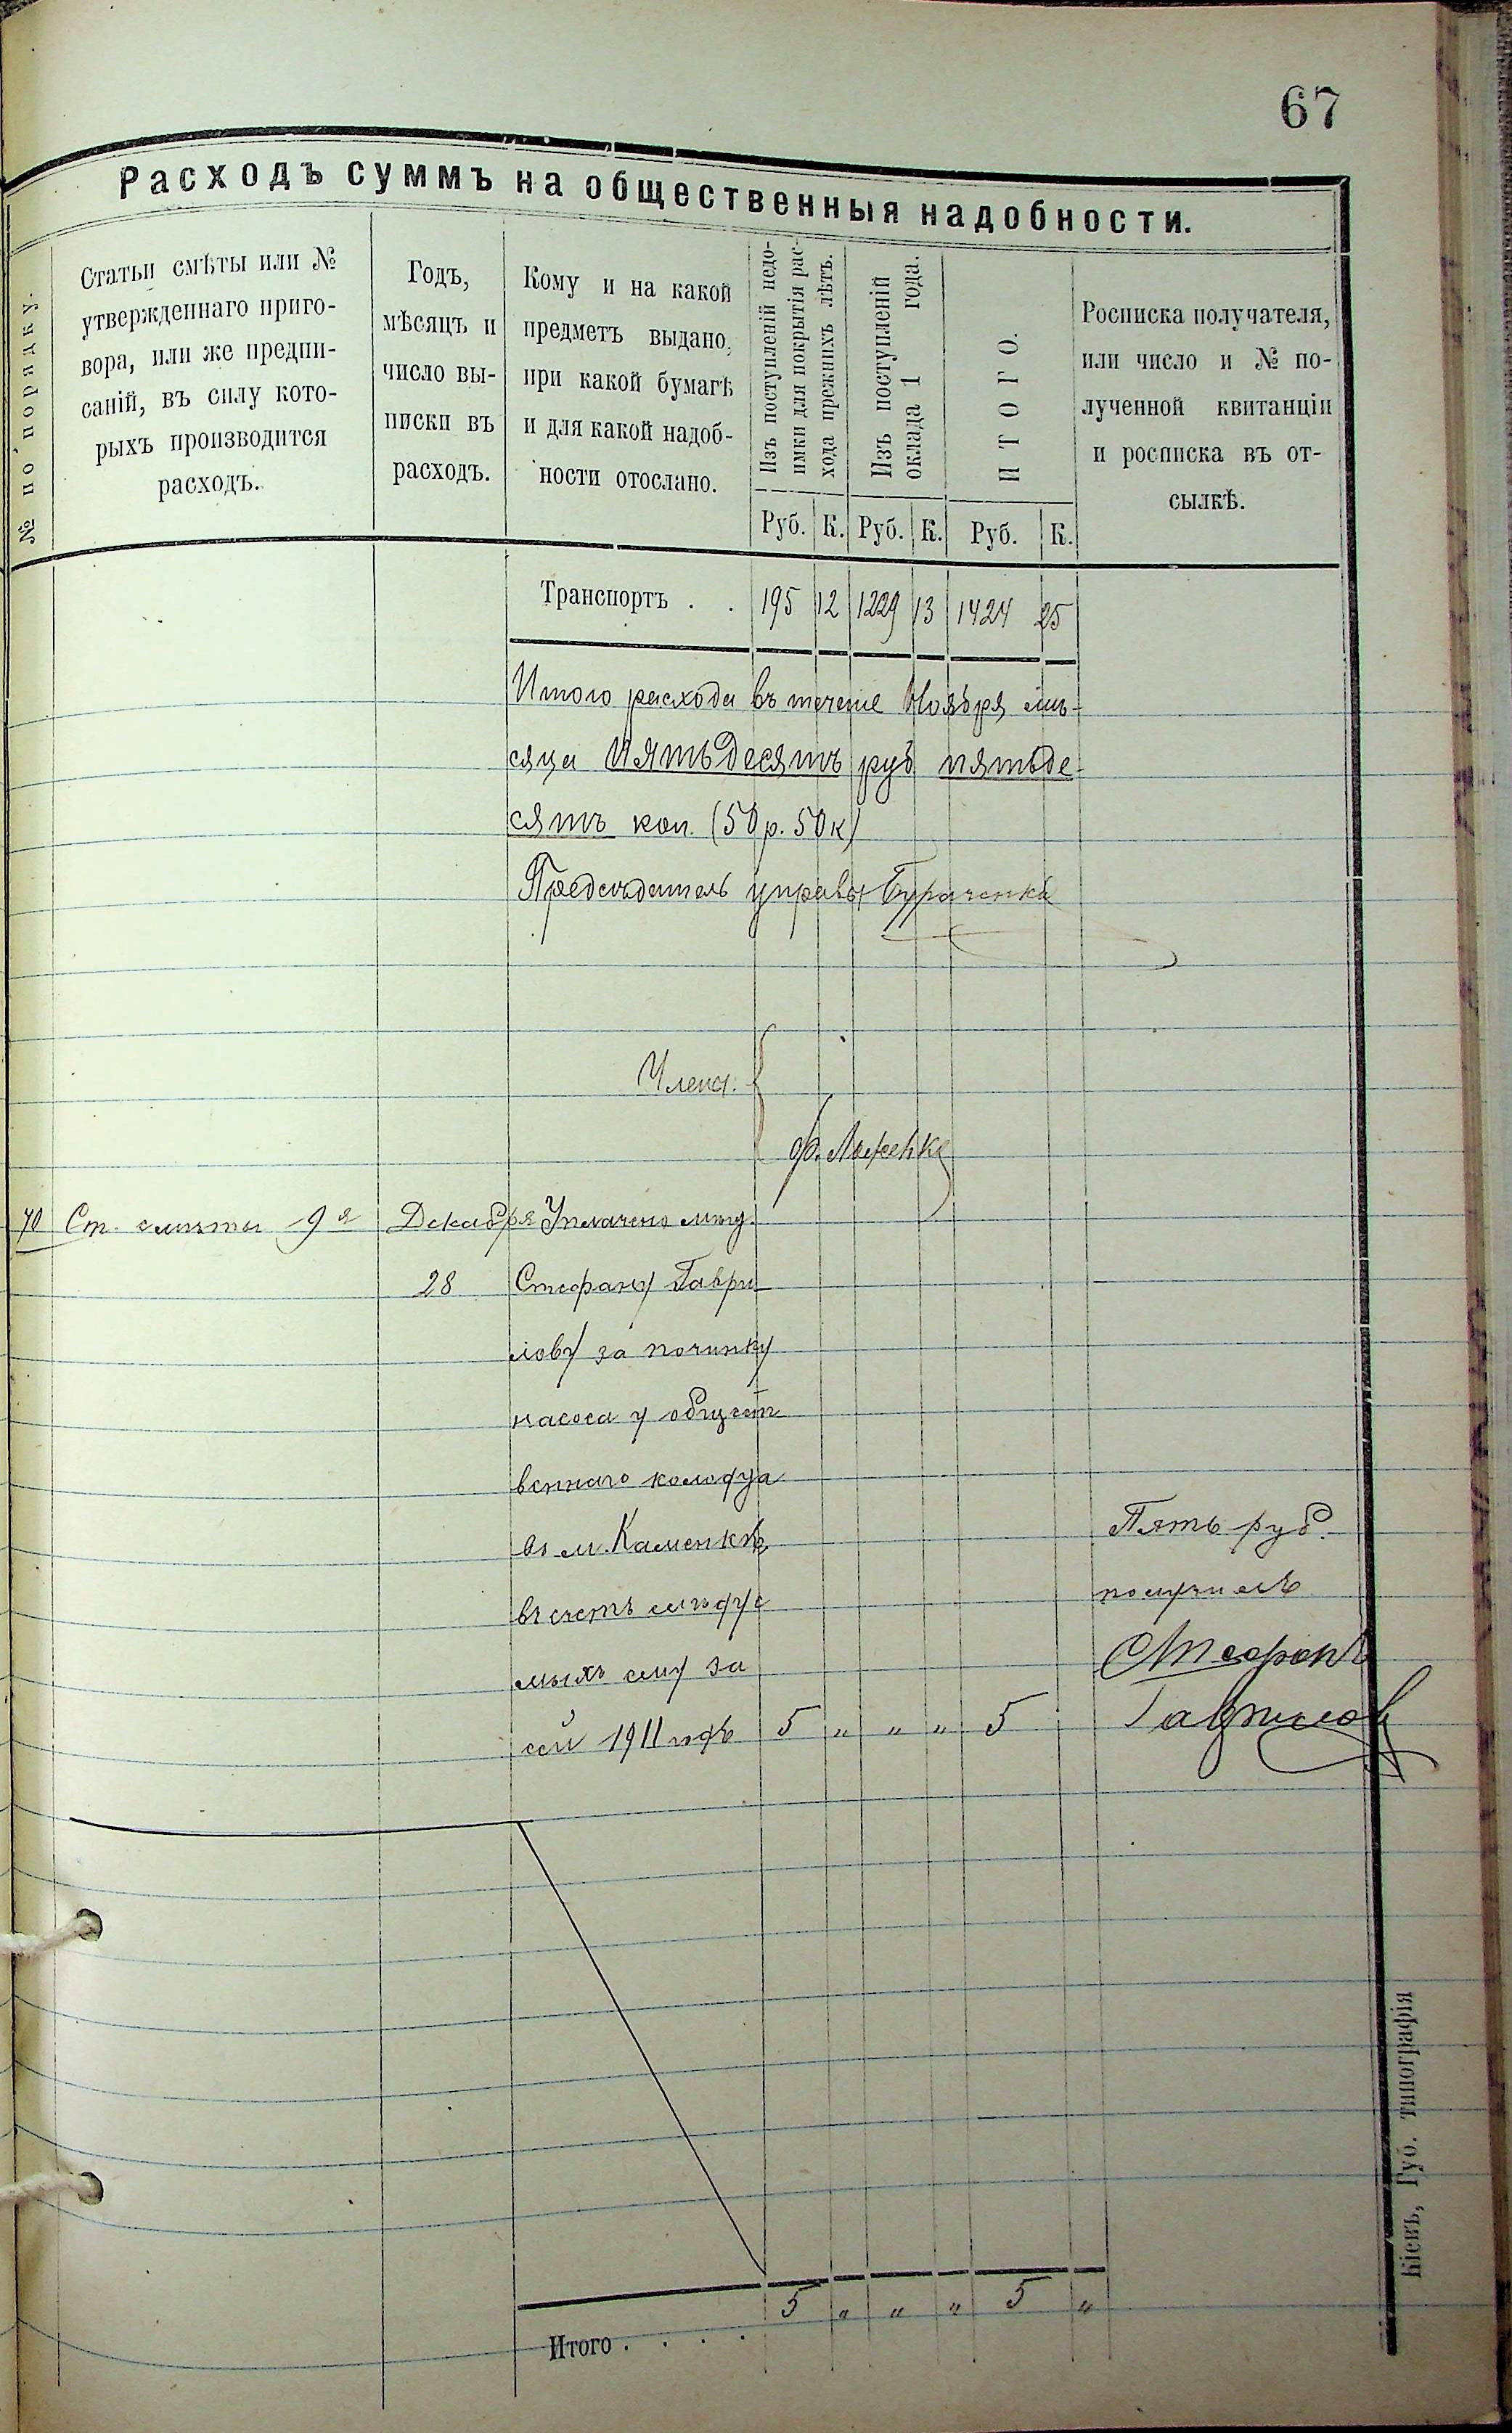 67
Расходъ суммъ на общественныя надобности.
№ по порядку.
Статьи смѣты или №
утвержденнаго приго-
вора, или же предпи-
саній, въ силу кото-
рыхъ производится
расходъ.
Годъ,
мѣсяцъ и
число вы-
писки въ
расходъ.
Кому и на какой
предметъ выдано,
при какой бумагѣ
и для какой надоб-
ности отослано.
Изъ поступленій недо-
имки для покрытія рас-
хода прежнихъ лѣтъ.
Изъ поступленій
оклада 1 года.
ИТОГО.
Росписка получателя,
или число и № по-
лученной квитанціи
и росписка въ от-
сылкѣ.
Руб. К. Руб. К. Руб. К.
Транспортъ . . 195 12 1229 13 1424 25
Итого расхода въ течете Ноября мѣ-
сяца Пятьдесятъ руб пятьде-
сятъ коп. (50 р. 50 к)
Предсѣдатель управы
Члены:
70 Ст. смѣты 9я Декабря Уплачено
28 Стефану Гаври-
лову за починку
насоса у общест
веннаго колодца
въ м. Каменкѣ
въ счетъ слѣдуе
мыхъ ему за
сей 1911 годъ 5 „ „ „ 5
Пять руб.
получилъ
Стефанъ
Гаврилов
5 „ „ „ 5 „
Итого . . . .
Кіевъ, Губ. типографія